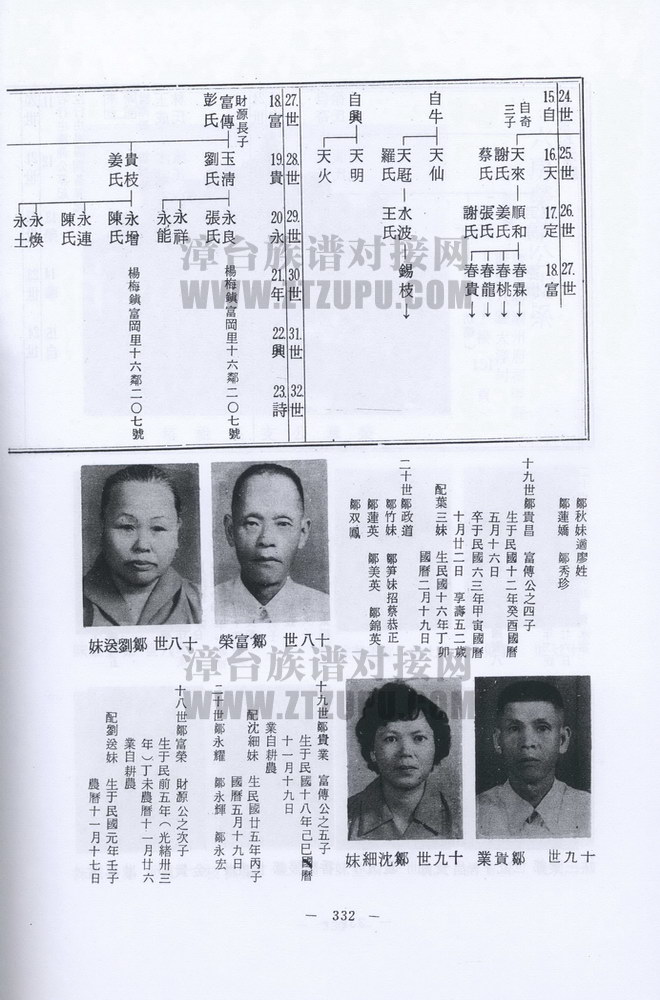 24.世 25.世 26.世 27.世
15自 16.天 17.定 18.富
自奇
三子
天來
謝氏
蔡氏
順和
姜氏
張氏
謝氏
春霖
春桃
春龍
春貴
自牛
天仙
天冠
羅氏
水波
王氏
錫枝
自興
天明
天火
27.世 28.世 29.世 30世 31.世 32.世
18.富 19.貴 20永 21.年 22.興 23.詩
財源長子
富傳
彭氏
玉清
劉氏
永良
張氏
永祥
永能
楊梅鎮富岡里十六鄰二〇七號
貴枝
姜氏
永增
陳氏
永連
陳氏
永煥
永土
楊梅鎮富岡里十六鄰二〇七號
鄒秋妹適廖姓
鄒蓮嬌 鄒秀珍
十九世鄒貴昌 富傳公之四子
生于民國十二年癸酉國曆
五月十六日
卒于民國六三年甲寅國曆
十月廿二日 享壽五二歲
配葉三妹 生民國十六年丁卯
國曆二月十九日
二十世鄒政道
鄒竹妹 鄒笋妹招蔡恭正
鄒蓮英 鄒美英 鄒錦英
鄒双鳳
十八世 鄒富榮
十八世 鄒劉送妹
十九世 鄒貴業
十九世 鄒沈細妹
十九世鄒貴業 富傳公之五子
生于民國十八年己巳國曆
十一月十九日
業自耕農
配沈細妹 生民國廿五年丙子
國曆五月十九日
二十世鄒永耀 鄒永輝 鄒永宏
十八世鄒富榮 財源公之次子
生于民前五年(光緒卅三
年)丁未農曆十一月廿六
業自耕農
配劉送妹 生于民國元年壬子
農曆十一月十七日
— 332 —
漳台族谱对接网
WWW.ZTZUPU.COM
漳台族谱对接网
WWW.ZTZUPU.COM